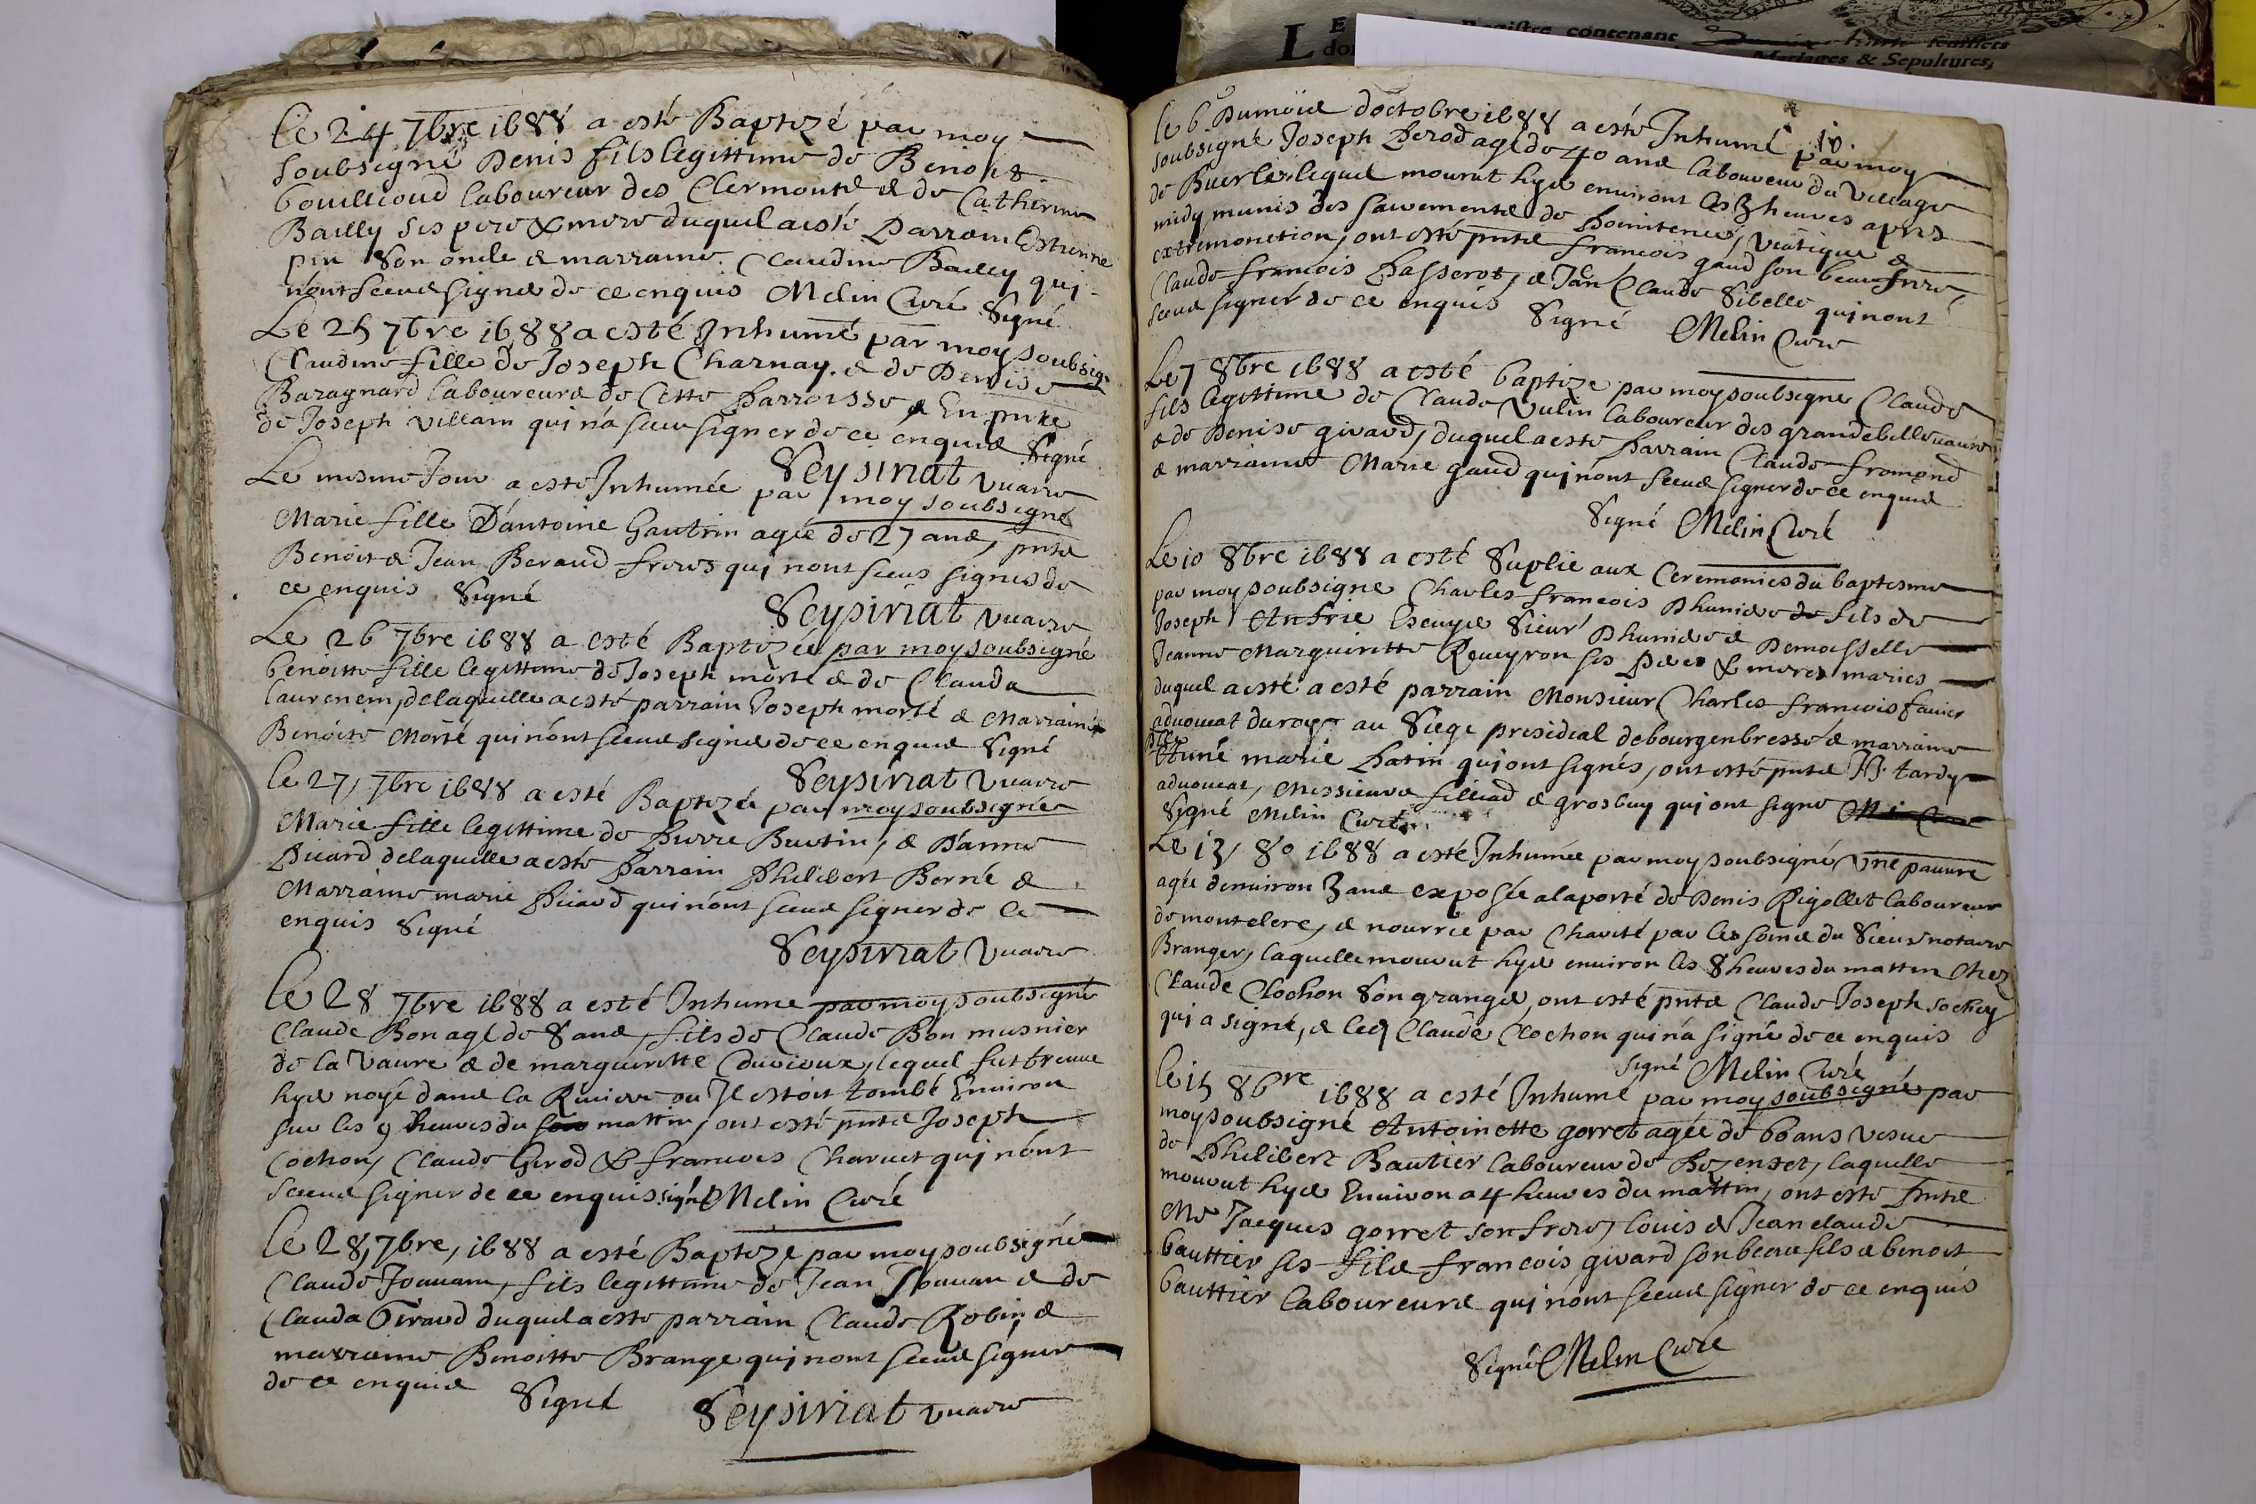 Le 24 7bre 1688 a esté Baptizé par moy
soubsigné Denis fils legittime de Benoist
bouilloud laboureur des Clermonts & de Catherine
Bailly ses pere & mere duquel a esté Parrain Estienne
pin son oncle & marraine Claudine Bailly qui
n'ont sceus signes de ce enquis Melin Curé Signé
Le 25 7bre 1688 a esté Inhumé par moy soubsig
Claudine fille de Joseph Charnay & de Denise
Baragnard laboureurs de Cette Parroisse & En pnte
de Joseph villam qui n'a sceu signer de ce enquis Signé
Seysiriat vicaire
Le mesme Jour a esté Inhumée par moy soubsigné
Marie fille D'antoine Gautrin agée de 27 ans, pnts
Benoist & Jean Beraud freres qui n'ont sceus signes de
ce enquis Signé
Seysiriat vicaire
Le 26 7bre 1688 a esté Baptizée par moy soubsigné
benoitte fille legittime de Joseph morte & de Clauda
laurencin, delaquelle a esté parrain Joseph morté & Marraine
Benoite Morté qui n'ont sceus signes de ce enquis Signé
Seysiriat vicaire
le 27, 7bre 1688 a esté Baptizée par moy soubsigné
Marie fille legittime de Pierre Burtin, & D'anne
Picard delaquelle a esté Parrain Philibert Borné &
Marraine marie Picard qui n'ont sceus signer de ce
enquis Signé
Seysiriat vicaire
Le 28 7bre 1688 a esté Inhume par moy soubsigné
Claude Bon agé de 8 ans, fils de Claude Bon musnier
de la Vaure & de margueritte Cuvioux, lequel fut treuvé
hyer noyé dans la Riviere ou Il estoit tombé Environ
sur les 9 heures du mattin, ont esté pnts Joseph
Cochon, Claude Girod & francois Charvet qui n'ont
sceus signer de ce enquis signé Melin Curé
Le 28, 7bre, 1688 a esté Baptize par moy soubsigné
Claude Jouvam, fils legittime de Jean Jouvam & de
Clauda Giraud duquel a esté parrain Claude Robin, &
marraine Benoitte Brange qui n'ont sceus signer
de ce enquis Signé Seysiriat vicaire
10.
le 6 Dumois doctobre 1688 a esté Inhumé par moy
soubsigné Joseph Perod agé de 40 ans laboureur du village
de Buerle, lequel mourut hyer environt les 3 heures apres
midy munis des sacrements de Poenitence, Viatique &
extremonction, ont esté pnts francois gaud son beaufrere,
Claude francois Passerot, & Jan Claude Sibelle qui n'ont
sceus signer de ce enquis Signé Melin Cure
Le 7 8bre 1688 a esté baptize par moy soubsigne Claude
fils legittime de Claude Vulin laboureur des grandebellevaure
& de Denise givard, duquel a esté Parrain Claude fromond
& marraine Marie gaud qui n'ont sceus signer de ce enquis
Signé Melin Curé
Le 10 8bre 1688 a esté Suplié aux Ceremonies du baptesme
par moy soubsigne Charles francois Dhunides fils de
Joseph Anfrie Escuyer Sieur Dhunides & Demoisselle
Jeanne Margueritte Reueyron ses Peres & meres maries
duquel a esté a esté parrain Monsieur Charles francois favier
advoucat du roy au Siege presidial de bourgenbresse & marraine
Dlle Anné marie Patin qui ont signés, ont esté pnts Jj. tardy
advoucat, Messieurs filliad & grosbuy qui ont signe
Signé Melin Curé
Le 13, 8o 1688 a esté Inhumée par moy soubsigné, une pauvre
agée denviron 3 ans exposée a laporté de Denis Rigollet laboureur
de montclere, & nourrie par Charité par les soins du Sieur notaire
Branger, laquelle mourut hyer environ les 8 heures du mattin Chez
Claude Clochon son granger, ont esté pnts Claude Joseph sochey
qui a signé, & led Claude Clochon qui n'a signé de ce enquis
signé Melin Curé
Le 15 8bre 1688 a esté Inhumé par moy soubsigné par
moy soubsigné Antoinette gorret agée de 60 ans vesve
de Philibert Bautier laboureur de Bozenset, laquelle
mourut hyer Environ a 4 heures du mattin, ont esté pnts
Me Jacques gorret son frere, louis & Jean claude
bauttier ses fils francois givard son beau fils & benoit
bauttier laboureurs qui n'ont sceus signer de ce enquis
Signé Melin Curé